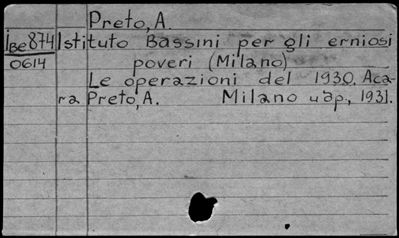 Preto, A.
iBe874 Istituto Bassini per gli erniosi
0614 poveri (Milano)
Le operazioni del 1930. A cu-
ra Preto, A. Milano
1931.